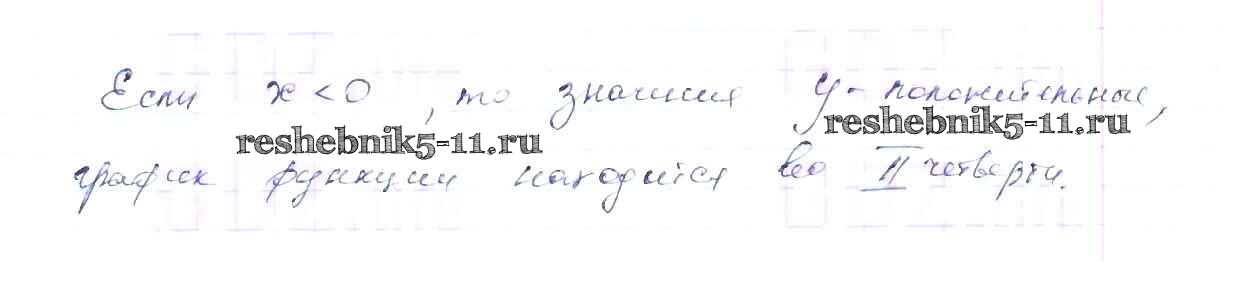 Если x < 0, то значения y - положительные,
reshebnik5-11.ru reshebnik5-11.ru
график функции находится во II четверти.